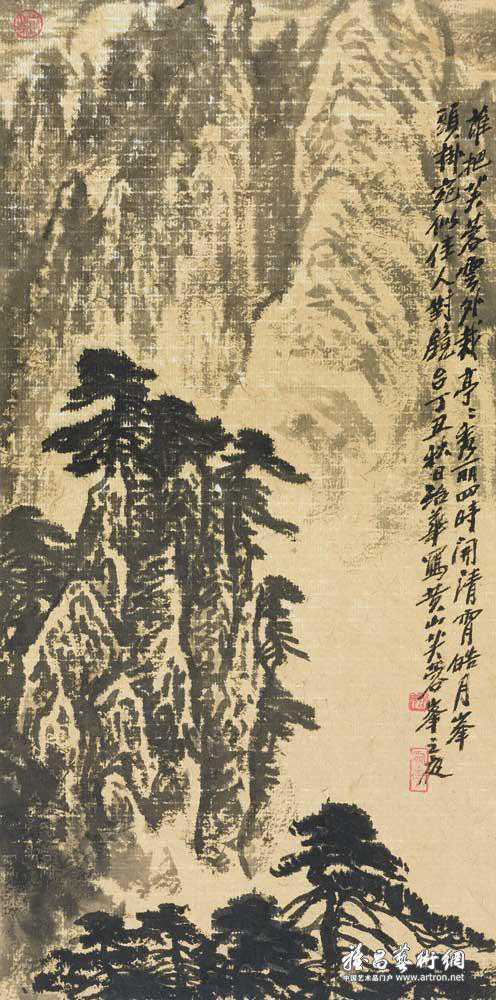 誰把芙蓉雲外栽亭亭秀麗四時開清宵皓月峯
頭掛宛似佳人對鏡台丁丑秋日 華寫黄山芙蓉峯之夜
雅昌藝術網
中国艺术品门户 www.artron.net